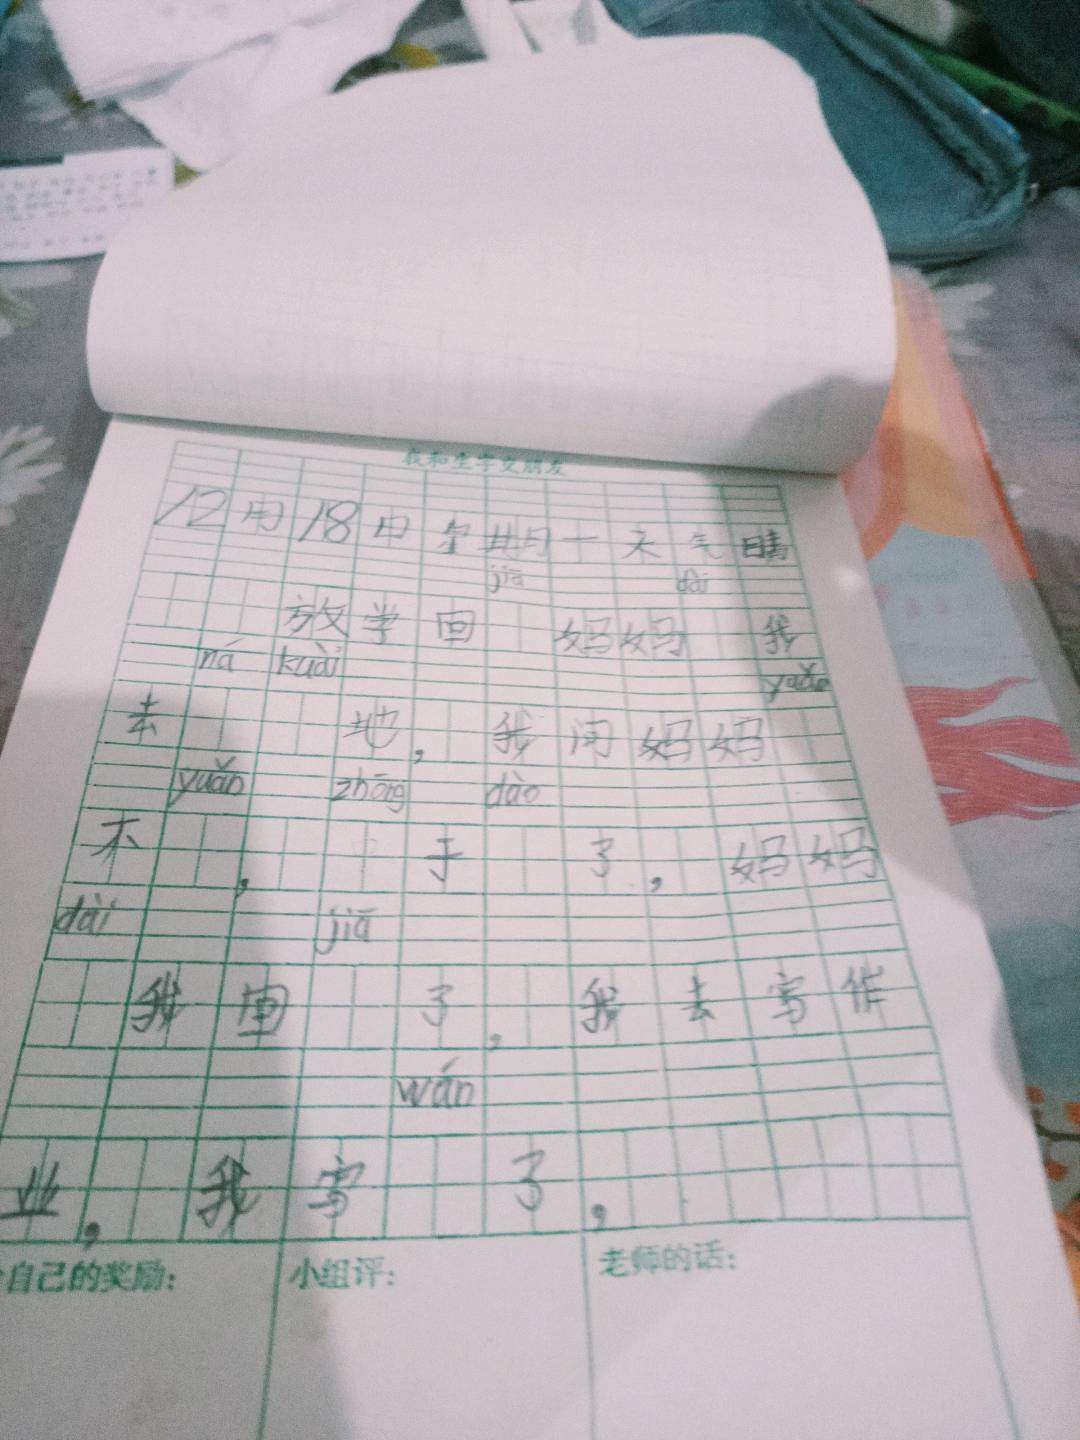 我和生字交朋友
12月18日星期一天气晴
jiā dài
放学回 妈妈 我
ná kuài yuǎn
去 地，我问妈妈
yuǎn zhōng dào
不 ， 于 了，妈妈
dài jiā
我回 了，我去写作
wán
业，我写 了，
自己的奖励：
小组评：
老师的话：